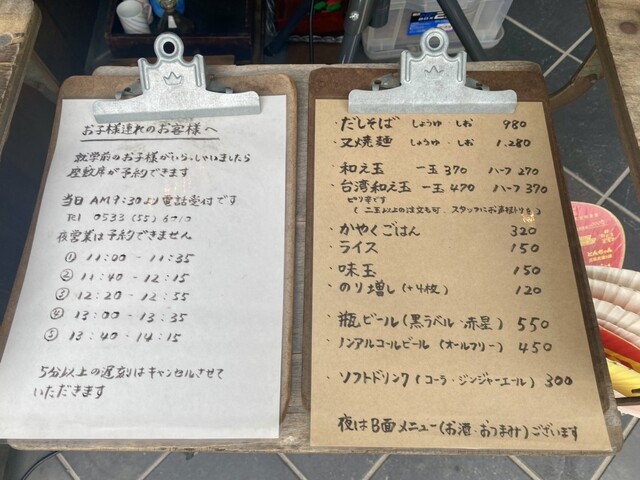 お子様連れのお客様へ
就学前のお子様がいらっしゃいましたら
座敷席が予約できます
当日AM9:30より電話受付です
Tel 0533 (55) 6010
夜営業は予約できません
① 11:00 - 11:35
② 11:40 - 12:15
③ 12:20 - 12:55
④ 13:00 - 13:35
⑤ 13:40 - 14:15
5分以上の遅刻はキャンセルさせて
いただきます
・だしそば しょうゆ しお 980
・叉焼麺 しょうゆ しお 1,280
・和え玉 一玉 370 ハーフ 270
・台湾和え玉 一玉 470 ハーフ 370
ピリ辛です
(二玉以上の注文も可、スタッフにお声掛け下さい)
・かやくごはん 320
・ライス 150
・味玉 150
・のり増し (+4枚) 120
・瓶ビール (黒ラベル・赤星) 550
・ノンアルコールビール (オールフリー) 450
・ソフトドリンク (コーラ・ジンジャーエール) 300
夜はB面メニュー (お酒・おつまみ) ございます